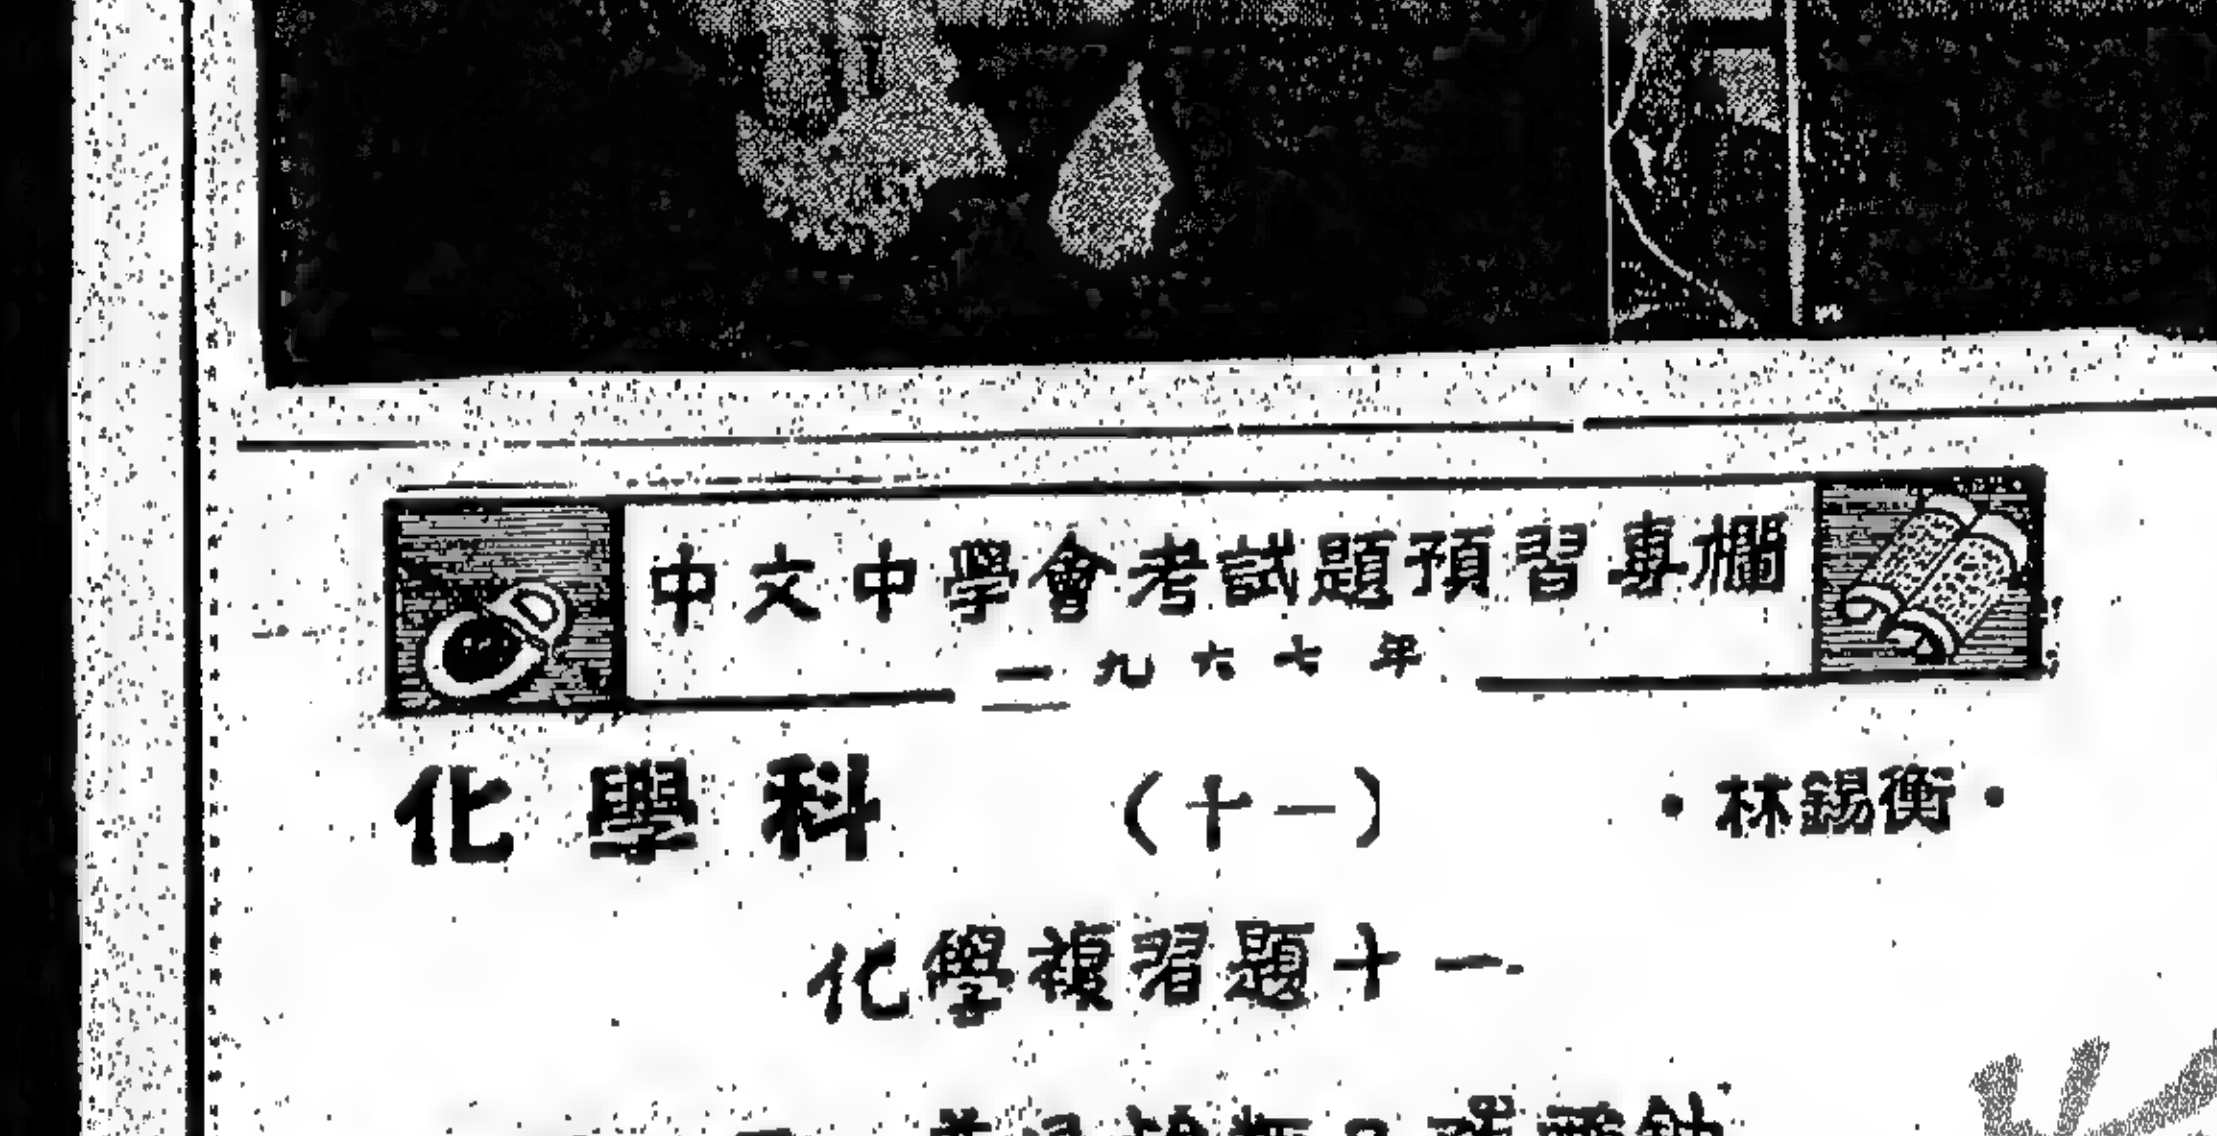 中文中學會考試題預習專欄
一九六七年
化學科 （十一） ・林錫衡・
化學複習題十一